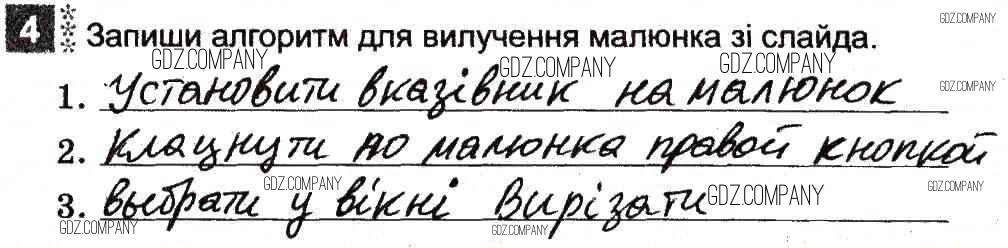 4 Запиши алгоритм для вилучення малюнка зі слайда.
1. Установити вказівник на малюнок
2. Клацнути по малюнка правой кнопкой
3. выбрати у вікні Вирізати
GDZ.COMPANY
GDZ.COMPANY
GDZ.COMPANY
GDZ.COMPANY
GDZ.COMPANY
GDZ.COMPANY
GDZ.COMPANY
GDZ.COMPANY
GDZ.COMPANY
GDZ.COMPANY
GDZ.COMPANY